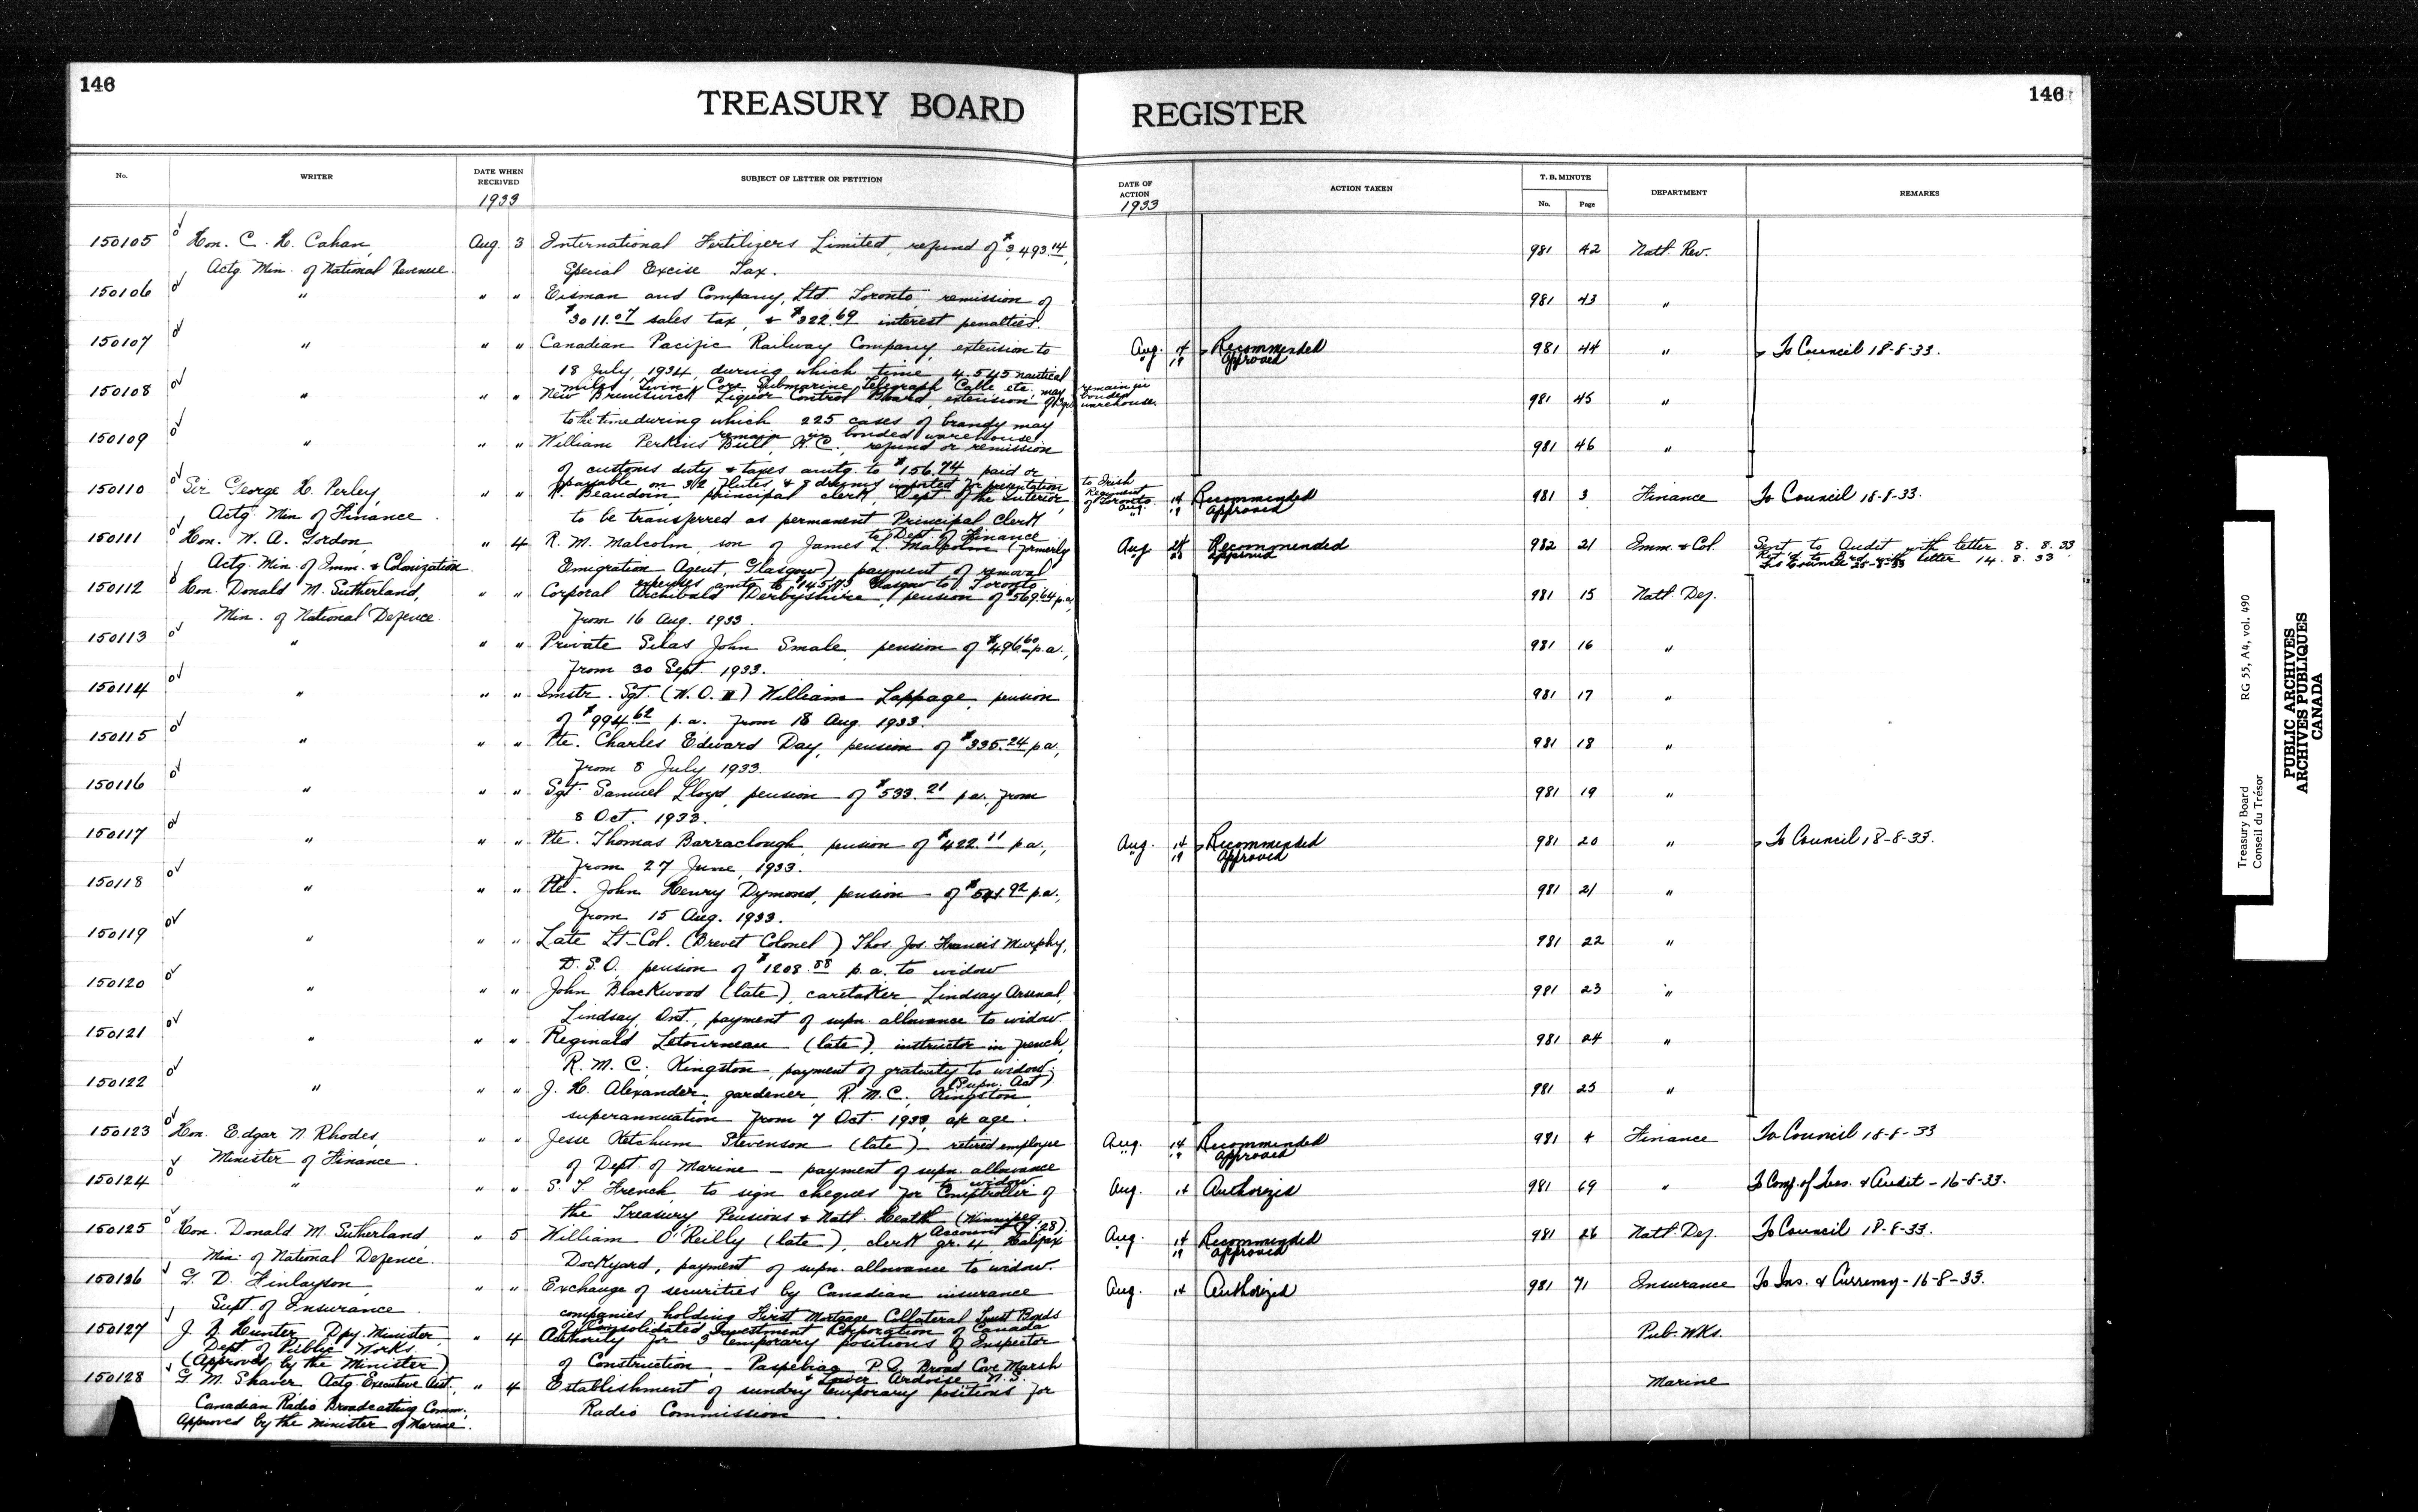 146
TREASURY BOARD REGISTER
146
No.
WRITER
DATE WHEN RECEIVED
1933
SUBJECT OF LETTER OR PETITION
DATE OF ACTION
1933
ACTION TAKEN
T. B. MINUTE
No.
Page
DEPARTMENT
REMARKS
150105 Hon. C. H. Cahan, Aug. 3 International Fertilizers Limited, refund of $3,493.14, 981 42 Natl. Rev.
Actg. Min. of National Revenue. Special Excise Tax.
150106 " " " Eisman and Company, Ltd. Toronto, remission of 981 43 "
$3011.07 sales tax, & $322.69 interest penalties.
150107 " " " Canadian Pacific Railway Company, extension to Aug. 14 Recommended 981 44 " To Council 18-8-33.
" 19 Approved
18 July, 1934, during which time 4.545 nautical
miles Twin Core Submarine Telegraph Cable etc. may remain in bonded warehouse.
150108 " " " New Brunswick Liquor Control Board, extension 981 45 "
to the time during which 225 cases of brandy may
remain in bonded warehouse.
150109 " " " William Perkins Bull, K.C., refund or remission 981 46 "
of customs duty & taxes amtg. to $156.74 paid or
payable, on 312 flutes, & 8 drums imported for presentation to Irish Regiment of Toronto
150110 Sir George H. Perley, " " Beaudoin, principal clerk, Dept of the Interior, Aug. 14 Recommended 981 3 Finance To Council 18-8-33.
Actg. Min of Finance. to be transferred as permanent Principal Clerk " 19 Approved
to Dept. of Finance
150111 Hon. W. A. Gordon, " 4 R. M. Malcolm, son of James L. Malcolm (formerly Aug. Recommended 982 21 Imm. & Col. Sent to Audit with letter 8. 8. 33
Approved
Actg. Min. of Imm. & Colonization. Emigration Agent, Glasgow) payment of removal with letter 14. 8. 33
To Council 25-8-33
expenses amtg. to $145.73 Glasgow to Toronto
150112 Hon. Donald M. Sutherland, " " Corporal Archibald Derbyshire, pension of $569.64 p.a. 981 15 Natl. Def.
Min. of National Defence. from 16 Aug. 1933.
150113 " " " Private Silas John Smale, pension of $496.60 p.a., 981 16 "
from 30 Sept. 1933.
150114 " " " Qmstr. Sgt. (W.O. II) William Lappage, pension 981 17 "
of $994.62 p.a. from 18 Aug. 1933.
150115 " " " Pte. Charles Edward Day, pension of $335.24 p.a., 981 18 "
from 8 July 1933.
150116 " " " Sgt. Samuel Lloyd, pension of $533.21 p.a., from 981 19 "
8 Oct. 1933.
150117 " " " Pte. Thomas Barraclough, pension of $422.11 p.a., Aug. 14 Recommended 981 20 " To Council 18-8-33.
from 27 June, 1933. " 19 Approved
150118 " " " Pte. John Henry Dymond, pension of p.a., 981 21 "
from 15 Aug. 1933.
150119 " " " Late Lt-Col. (Brevet Colonel) Thos. Jos. Francis Murphy, 981 22 "
D.S.O. pension of $1208.88 p.a. to widow
150120 " " " John Blackwood (late), caretaker, Lindsay Arsenal, 981 23 "
Lindsay, Ont., payment of supn. allowance to widow.
150121 " " " Reginald Letourneau (late), instructor in French, 981 24 "
R. M. C., Kingston, payment of gratuity to widow.
(Supn. Act)
150122 " " " J. H. Alexander, gardener, R. M. C., Kingston, 981 25 "
superannuation from 7 Oct. 1933, a/c age.
150123 Hon. Edgar N. Rhodes, " " Jesse Ketchum Stevenson (late) - retired employee Aug. 14 Recommended 981 4 Finance To Council 18-8-33
" 19 Approved
Minister of Finance. of Dept. of Marine - payment of supn. allowance
to widow
150124 " " " S. T. French, to sign cheques for Comptroller of Aug. 14 Authorized 981 69 " To Comp. of Treas. & Audit - 16-8-33.
the Treasury, Pensions & Natl. Health (Winnipeg Account 28).
150125 Hon. Donald M. Sutherland, " 5 William O'Reilly (late), clerk gr. 4, Halifax Aug. 14 Recommended 981 26 Natl. Def. To Council 18-8-33.
" 19 Approved
Min. of National Defence. Dockyard, payment of supn. allowance to widow.
150126 G. D. Finlayson, " " Exchange of securities by Canadian insurance Aug. 14 Authorized 981 71 Insurance To Ins. & Currency - 16-8-33.
Supt. of Insurance. companies, holding First Mortgage Collateral Trust Bonds
of Consolidated Investment Corporation of Canada
150127 J. B. Hunter, Dpy. Minister, " 4 Authority for 3 temporary positions of Inspector Pub. Wks.
Dept. of Public Works of Construction, - Paspebiac P.Q. Broad Cove Marsh
(Approved by the Minister) & Lower Ardoise N.S.
150128 G. M. Shaver, Actg. Executive Asst., " 4 Establishment of sundry temporary positions for Marine
Canadian Radio Broadcasting Comm. Radio Commission.
Approved by the Minister of Marine.
Treasury Board
Conseil du Trésor
RG 55, A4, vol. 490
PUBLIC ARCHIVES
ARCHIVES PUBLIQUES
CANADA